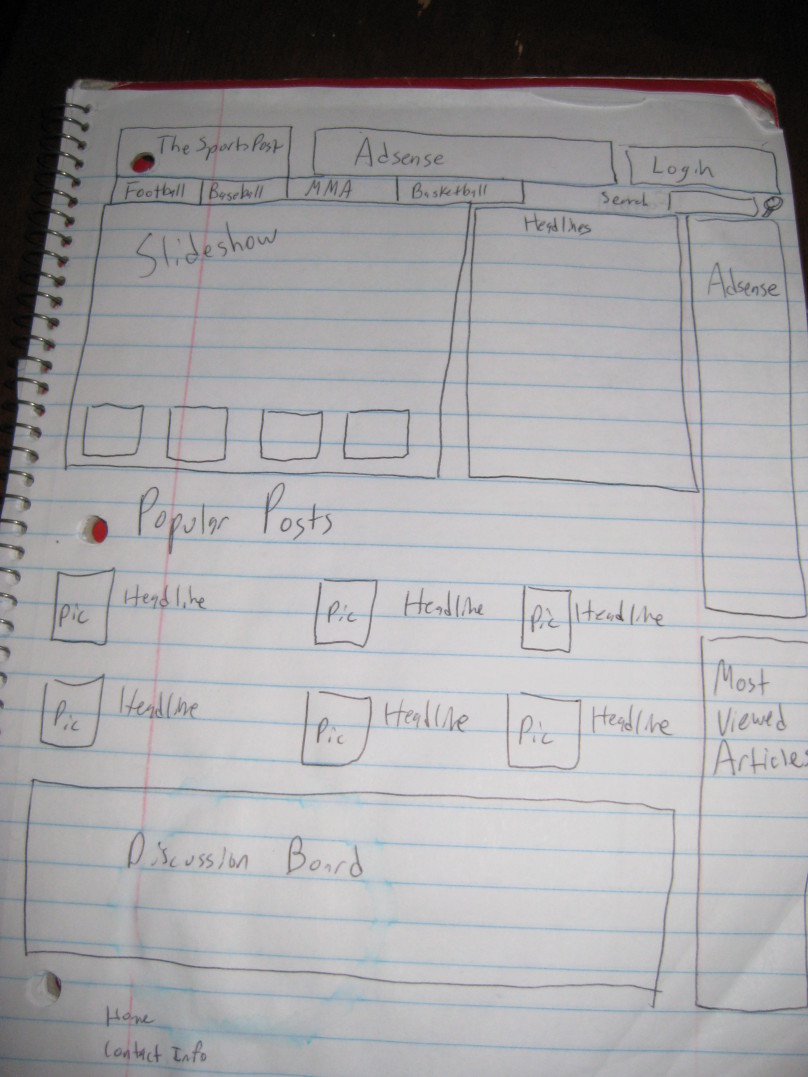 The SportsPost
Adsense
Login
Football Baseball MMA Basketball
Search
Slideshow
Headlines
Adsense
Popular Posts
Pic Headline Pic Headline Pic Headline
Pic Headline Pic Headline Pic Headline
Most
Viewed
Articles
Discussion Board
Home
Contact Info